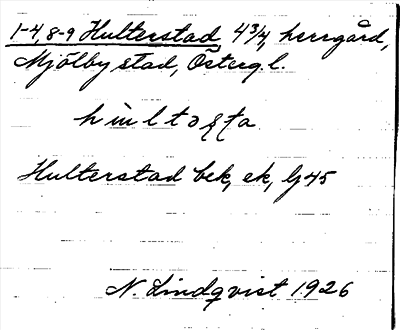 1-4, 8-9 Hulterstad, 4 3/4, herrgård,
Mjölby stad, Österg.l.
Hulterstad bek, ek, Lj 45
N Lindqvist 1926